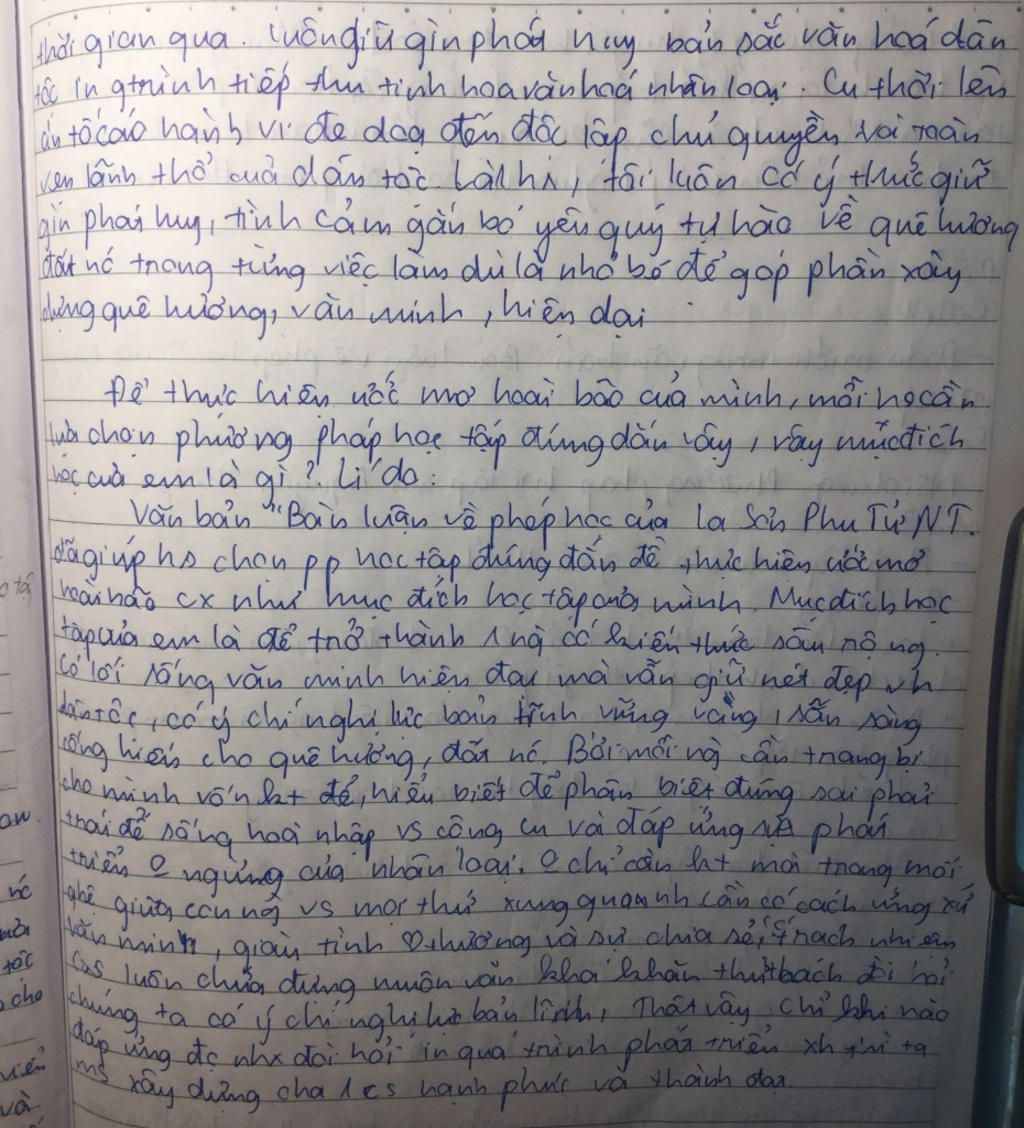 thời gian qua. Luôn giữ gìn phát huy bản sắc văn hoá dân
tộc in qtrình tiếp thu tinh hoa văn hoá nhân loại. Cu thời lên
án tố cáo hành vi đe doạ đến độc lập chủ quyền và toàn
vẹn lãnh thổ của dân tộc. Là 1 hs, tôi luôn có ý thức giữ
gìn phát huy, tình cảm gắn bó yêu quý tự hào về quê hương
đất nc trong từng việc làm dù là nhỏ bé để góp phần xây
dựng quê hương, văn minh, hiện đại
Để thực hiện ước mơ hoài bão của mình, mỗi hs cần
lựa chọn phương pháp học tập đúng đắn vậy, vậy mục đích
học của em là gì? Lí do:
Văn bản "Bàn luận về phép học của La Sơn Phu Tử NT.
đã giúp hs chọn pp học tập đúng đắn để thực hiện ước mơ
hoài bão cx như mục đích học tập của mình. Mục đích học
tập của em là để trở thành 1 ng có kiến thức sâu rộng.
Có lối sống văn minh hiện đại mà vẫn giữ nét đẹp vh
dân tộc, có ý chí nghị lực bản lĩnh vững vàng, sẵn sàng
cống hiến cho quê hương, đất nc. Bởi mỗi ng cần trang bị
cho mình vốn kt để, hiểu biết để phân biệt đúng sai phải
trái để sống hoà nhập vs công và đáp ứng sự phát
triển 0 ngừng của nhân loại. 0 chỉ cần kt mà trong mối
qhệ giữa con ng vs mọi thứ xung quanh cần có cách ứng xử
văn minh, giàu tình ♡ thương và sự chia sẻ, trách nhiệm
Cs luôn chứa đựng muôn vàn khó khăn thử thách đòi hỏi
chúng ta có ý chí nghị lực bản lĩnh, Thật vậy chỉ khi nào
đáp ứng đc nhx đòi hỏi in quá trình phát triển xh thì ta
ms xây dựng cho 1 cs hạnh phúc và thành đạt.